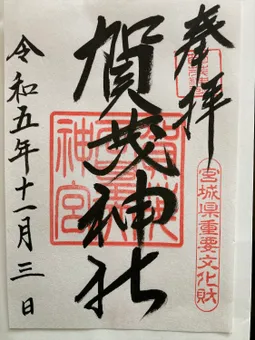 奉拝
賀茂神社
宮城県重要文化財
令和五年十一月三日